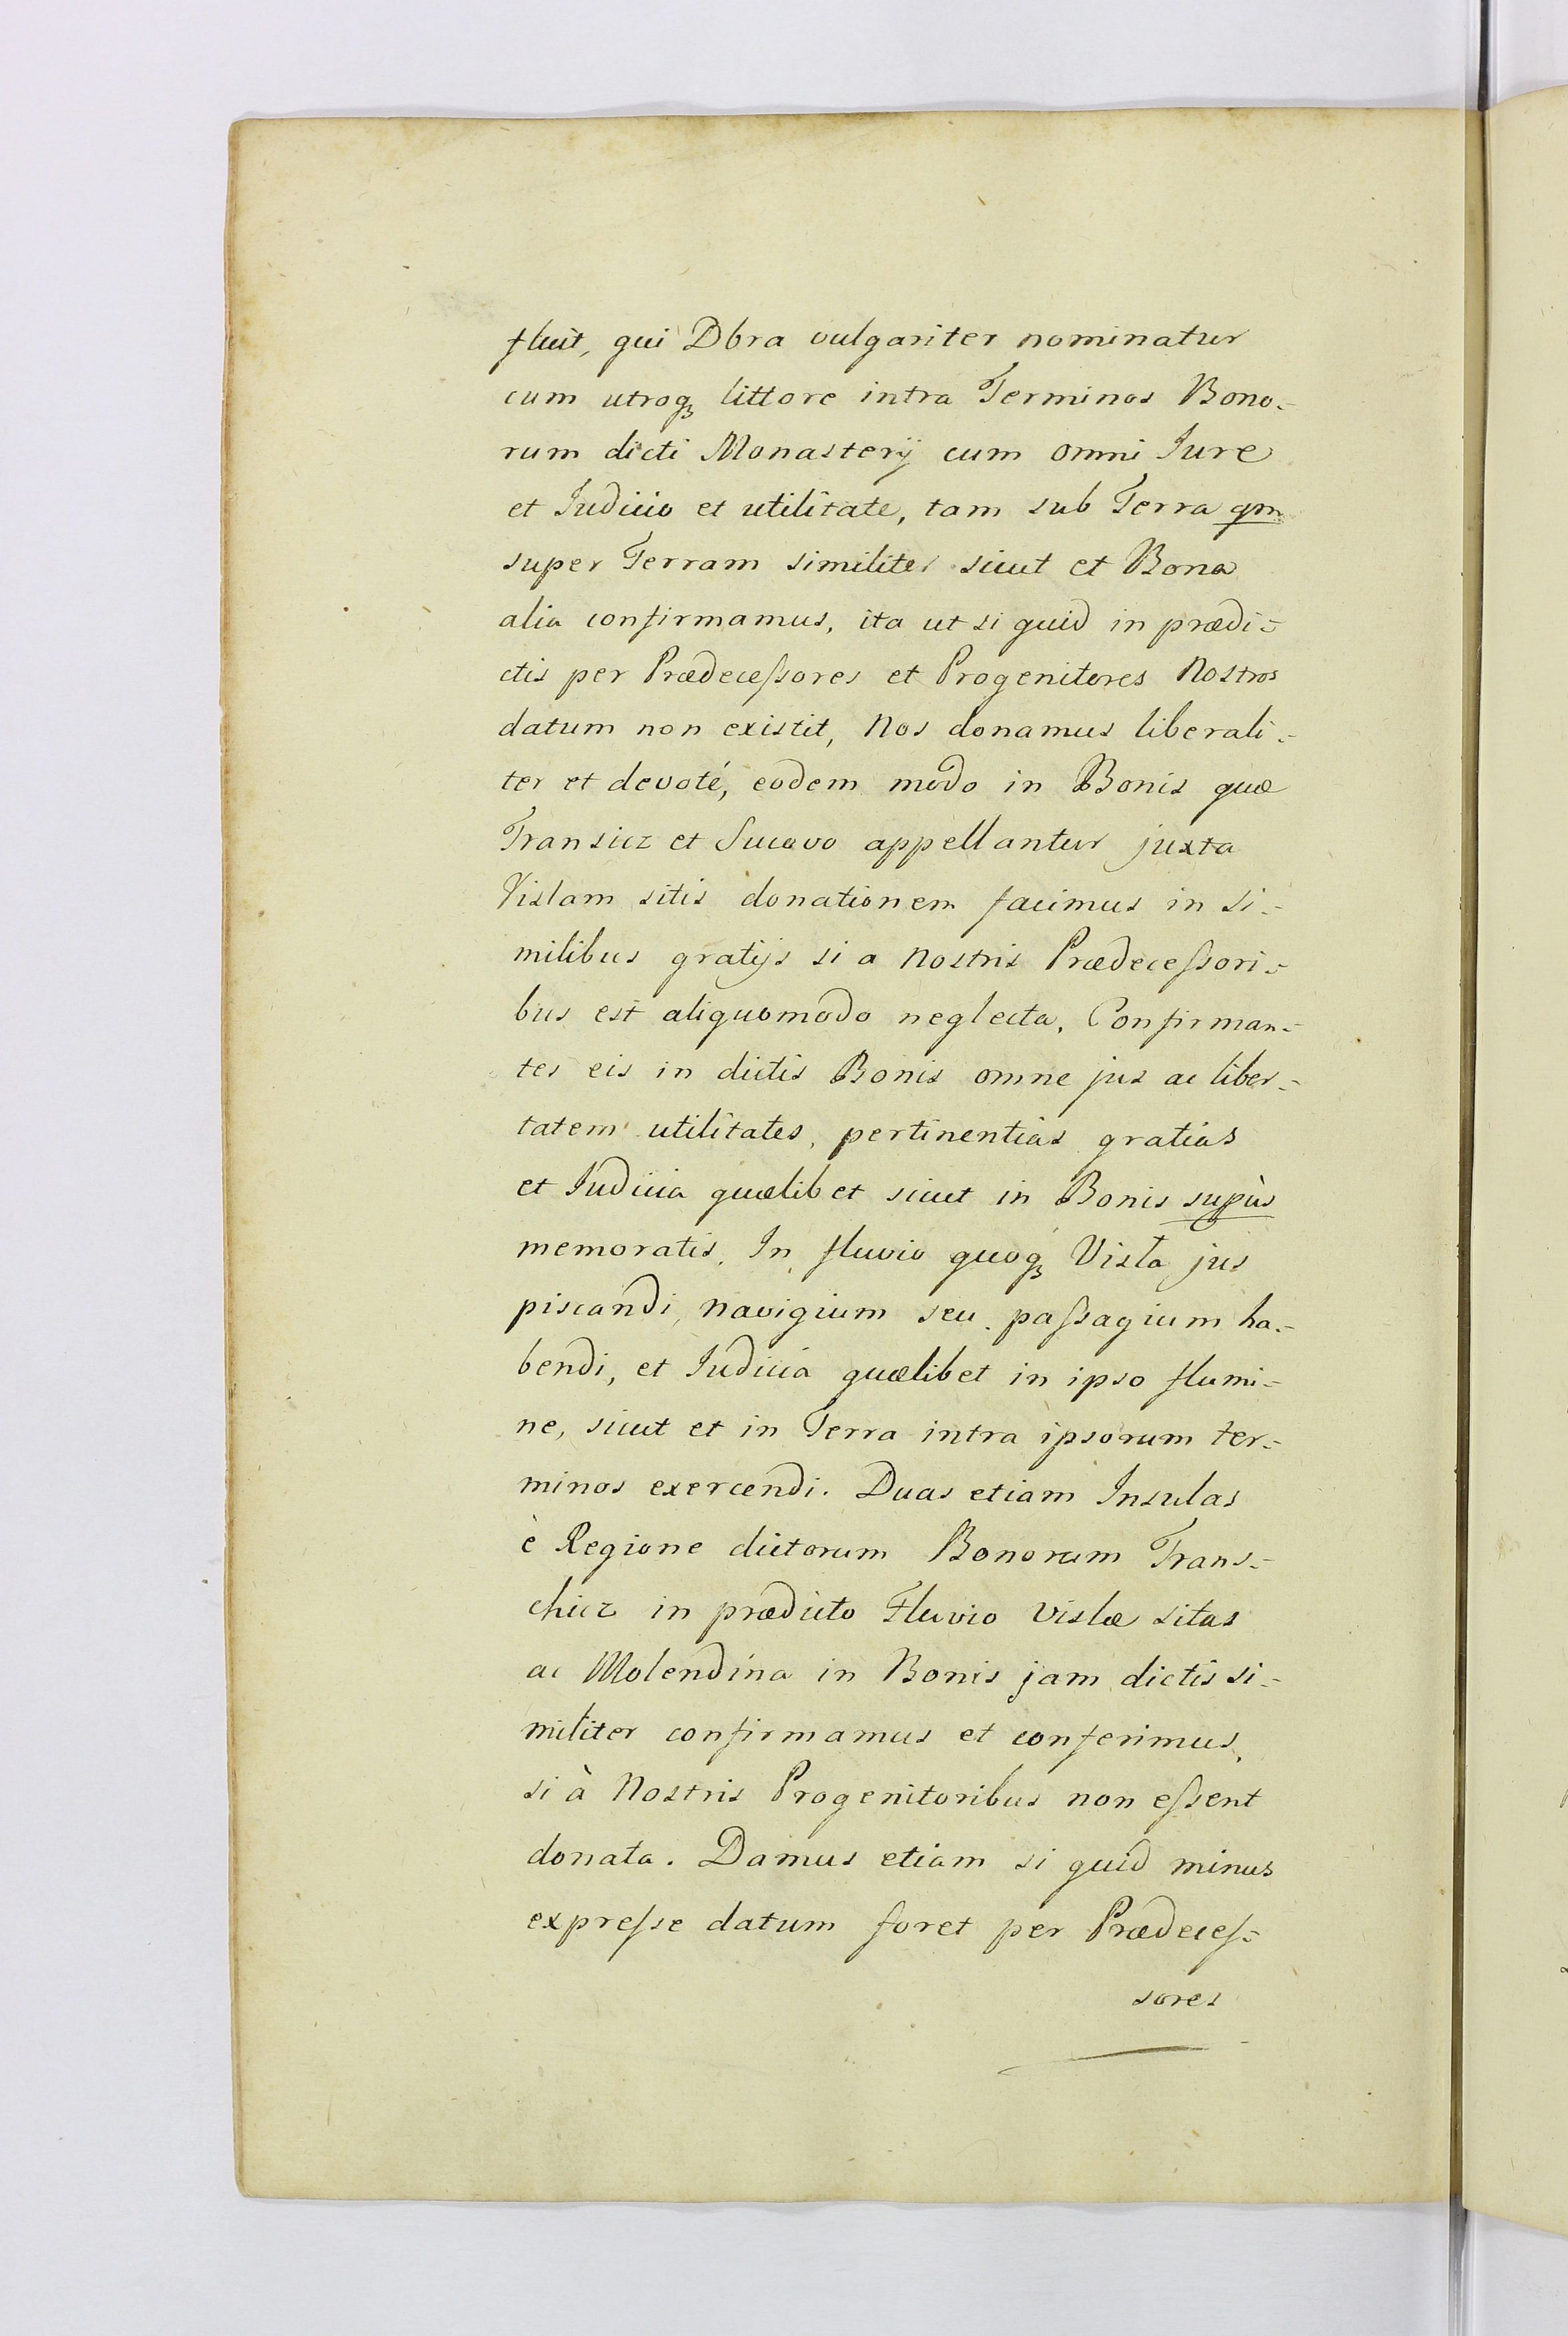 fluit, qui Dbra vulgariter nominatur
cum utroqꝫ littore intra Terminos Bono-
rum dicti Monasterij cum omni Iure
et Iudicio et utilitate, tam sub Terra qm
super Terram similiter sicut et Bona
alia confirmamus, ita ut si quid in prædi-
ctis per Prædeceſsores et Progenitores Nostros
datum non existit, Nos donamus liberali-
ter et devoté, eodem modo in Bonis quæ
Transicz et Sucovo appellantur juxta
Vislam sitis donationem facimus in si-
milibus gratijs si a Nostris Prædeceſsori-
bus est aliquomodo neglecta, Confirman-
tes eis in dictis Bonis omne jus ac liber-
tatem utilitates, pertinentias gratias
et Iudicia quælibet sicut in Bonis supùs
memoratis. In fluvio quoqꝫ Visla jus
piscandi, navigium seu paſsagium ha-
bendi, et Iudicia quælibet in ipso flumi-
ne, sicut et in Terra intra ipsorum ter-
minos exercendi. Duas etiam Insulas
è Regione dictorum Bonorum Trans-
chicz in prædicto Fluvio Vislæ sitas
ac Molendina in Bonis jam dictis si-
militer confirmamus et conferimus,
si à Nostris Progenitoribus non eſsent
donata. Damus etiam si quid minus
expreſse datum foret per Prædeceſ-
sores